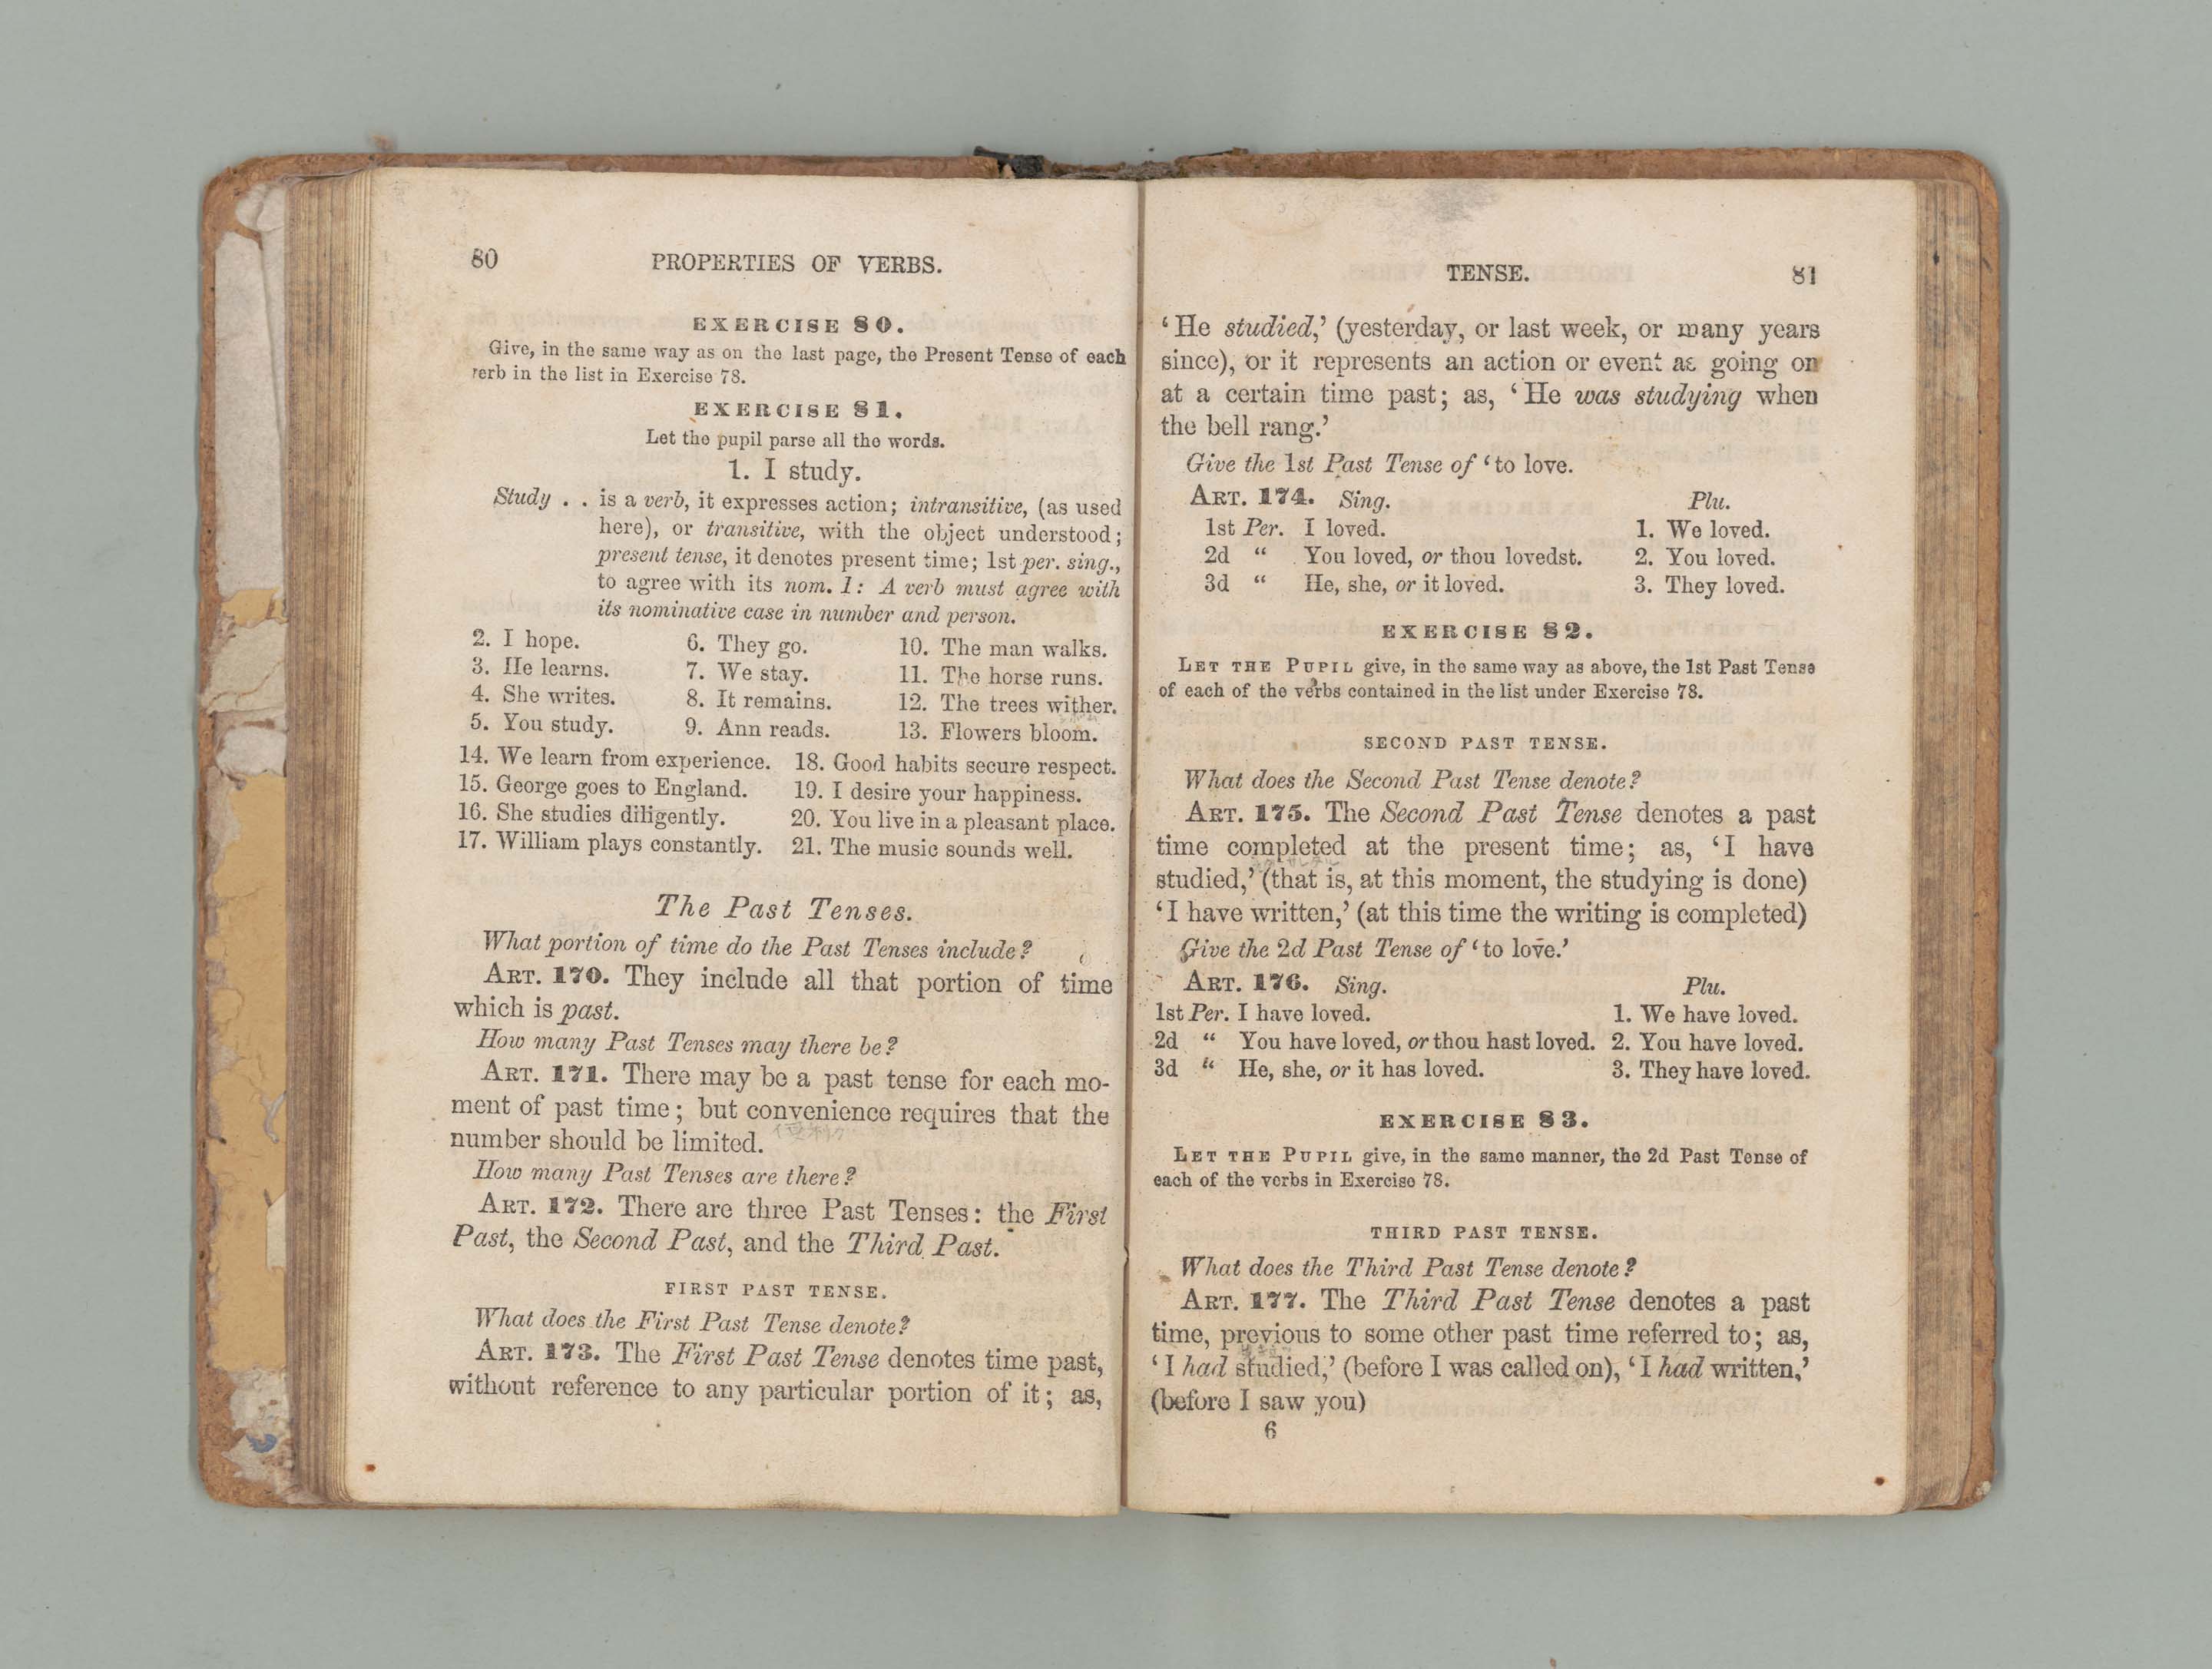 80 PROPERTIES OF VERBS.
EXERCISE 80.
Give, in the same way as on the last page, the Present Tense of each
verb in the list in Exercise 78.
EXERCISE 81.
Let the pupil parse all the words.
1. I study.
Study . . is a verb, it expresses action; intransitive, (as used
here), or transitive, with the object understood;
present tense, it denotes present time; 1st per. sing.,
to agree with its nom. I: A verb must agree with
its nominative case in number and person.
2. I hope. 6. They go. 10. The man walks.
3. He learns. 7. We stay. 11. The horse runs.
4. She writes. 8. It remains. 12. The trees wither.
5. You study. 9. Ann reads. 13. Flowers bloom.
14. We learn from experience. 18. Good habits secure respect.
15. George goes to England. 19. I desire your happiness.
16. She studies diligently. 20. You live in a pleasant place.
17. William plays constantly. 21. The music sounds well.
The Past Tenses.
What portion of time do the Past Tenses include?
ART. 170. They include all that portion of time
which is past.
How many Past Tenses may there be?
ART. 171. There may be a past tense for each mo-
ment of past time; but convenience requires that the
number should be limited.
How many Past Tenses are there?
ART. 172. There are three Past Tenses: the First
Past, the Second Past, and the Third Past.
FIRST PAST TENSE.
What does the First Past Tense denote?
ART. 173. The First Past Tense denotes time past,
without reference to any particular portion of it; as,
TENSE. 81
‘He studied,’ (yesterday, or last week, or many years
since), or it represents an action or event as going on
at a certain time past; as, ‘He was studying when
the bell rang.’
Give the 1st Past Tense of ‘to love.
ART. 174. Sing. Plu.
1st Per. I loved. 1. We loved.
2d “ You loved, or thou lovedst. 2. You loved.
3d “ He, she, or it loved. 3. They loved.
EXERCISE 82.
LET THE PUPIL give, in the same way as above, the 1st Past Tense
of each of the verbs contained in the list under Exercise 78.
SECOND PAST TENSE.
What does the Second Past Tense denote?
ART. 175. The Second Past Tense denotes a past
time completed at the present time; as, ‘I have
studied,’ (that is, at this moment, the studying is done)
‘I have written,’ (at this time the writing is completed)
Give the 2d Past Tense of ‘to love.’
ART. 176. Sing. Plu.
1st Per. I have loved. 1. We have loved.
2d “ You have loved, or thou hast loved. 2. You have loved.
3d “ He, she, or it has loved. 3. They have loved.
EXERCISE 83.
LET THE PUPIL give, in the same manner, the 2d Past Tense of
each of the verbs in Exercise 78.
THIRD PAST TENSE.
What does the Third Past Tense denote?
ART. 177. The Third Past Tense denotes a past
time, previous to some other past time referred to; as,
‘I had studied,’ (before I was called on), ‘I had written,’
(before I saw you)
6